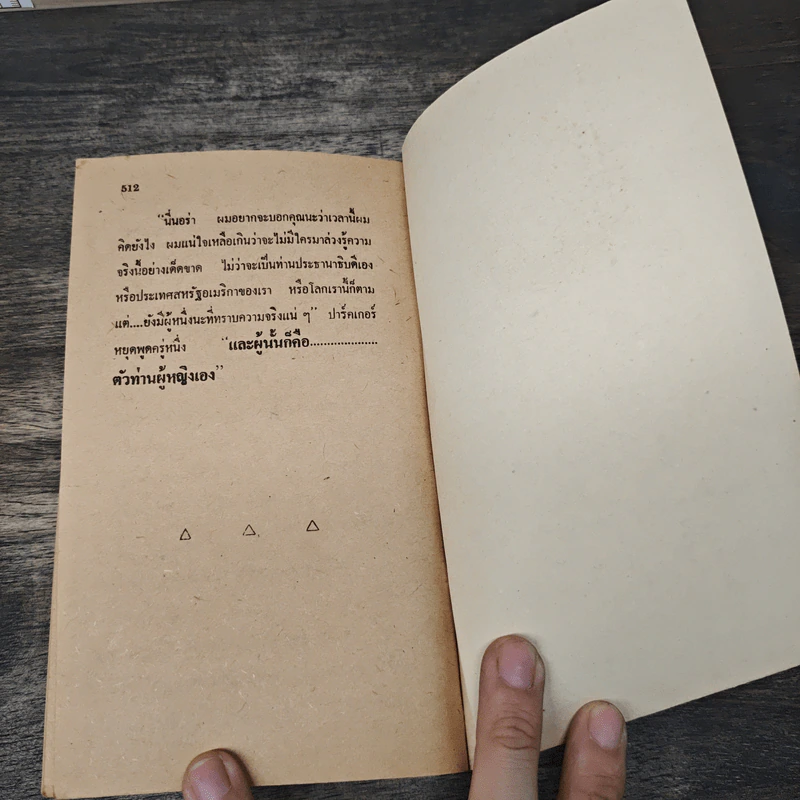 512
"นี่นอร่า ผมอยากจะบอกคุณนะว่าเวลานี้ผม
คิดยังไง ผมแน่ใจเหลือเกินว่าจะไม่มีใครมาล่วงรู้ความ
จริงนี้อย่างเด็ดขาด ไม่ว่าจะเป็นท่านประธานาธิบดีเอง
หรือประเทศสหรัฐอเมริกาของเรา หรือโลกเรานี้ก็ตาม
แต่....ยังมีผู้หนึ่งนะที่ทราบความจริงแน่ ๆ" ปาร์คเกอร์
หยุดพูดครู่หนึ่ง "และผู้นั้นก็คือ....................
ตัวท่านผู้หญิงเอง"